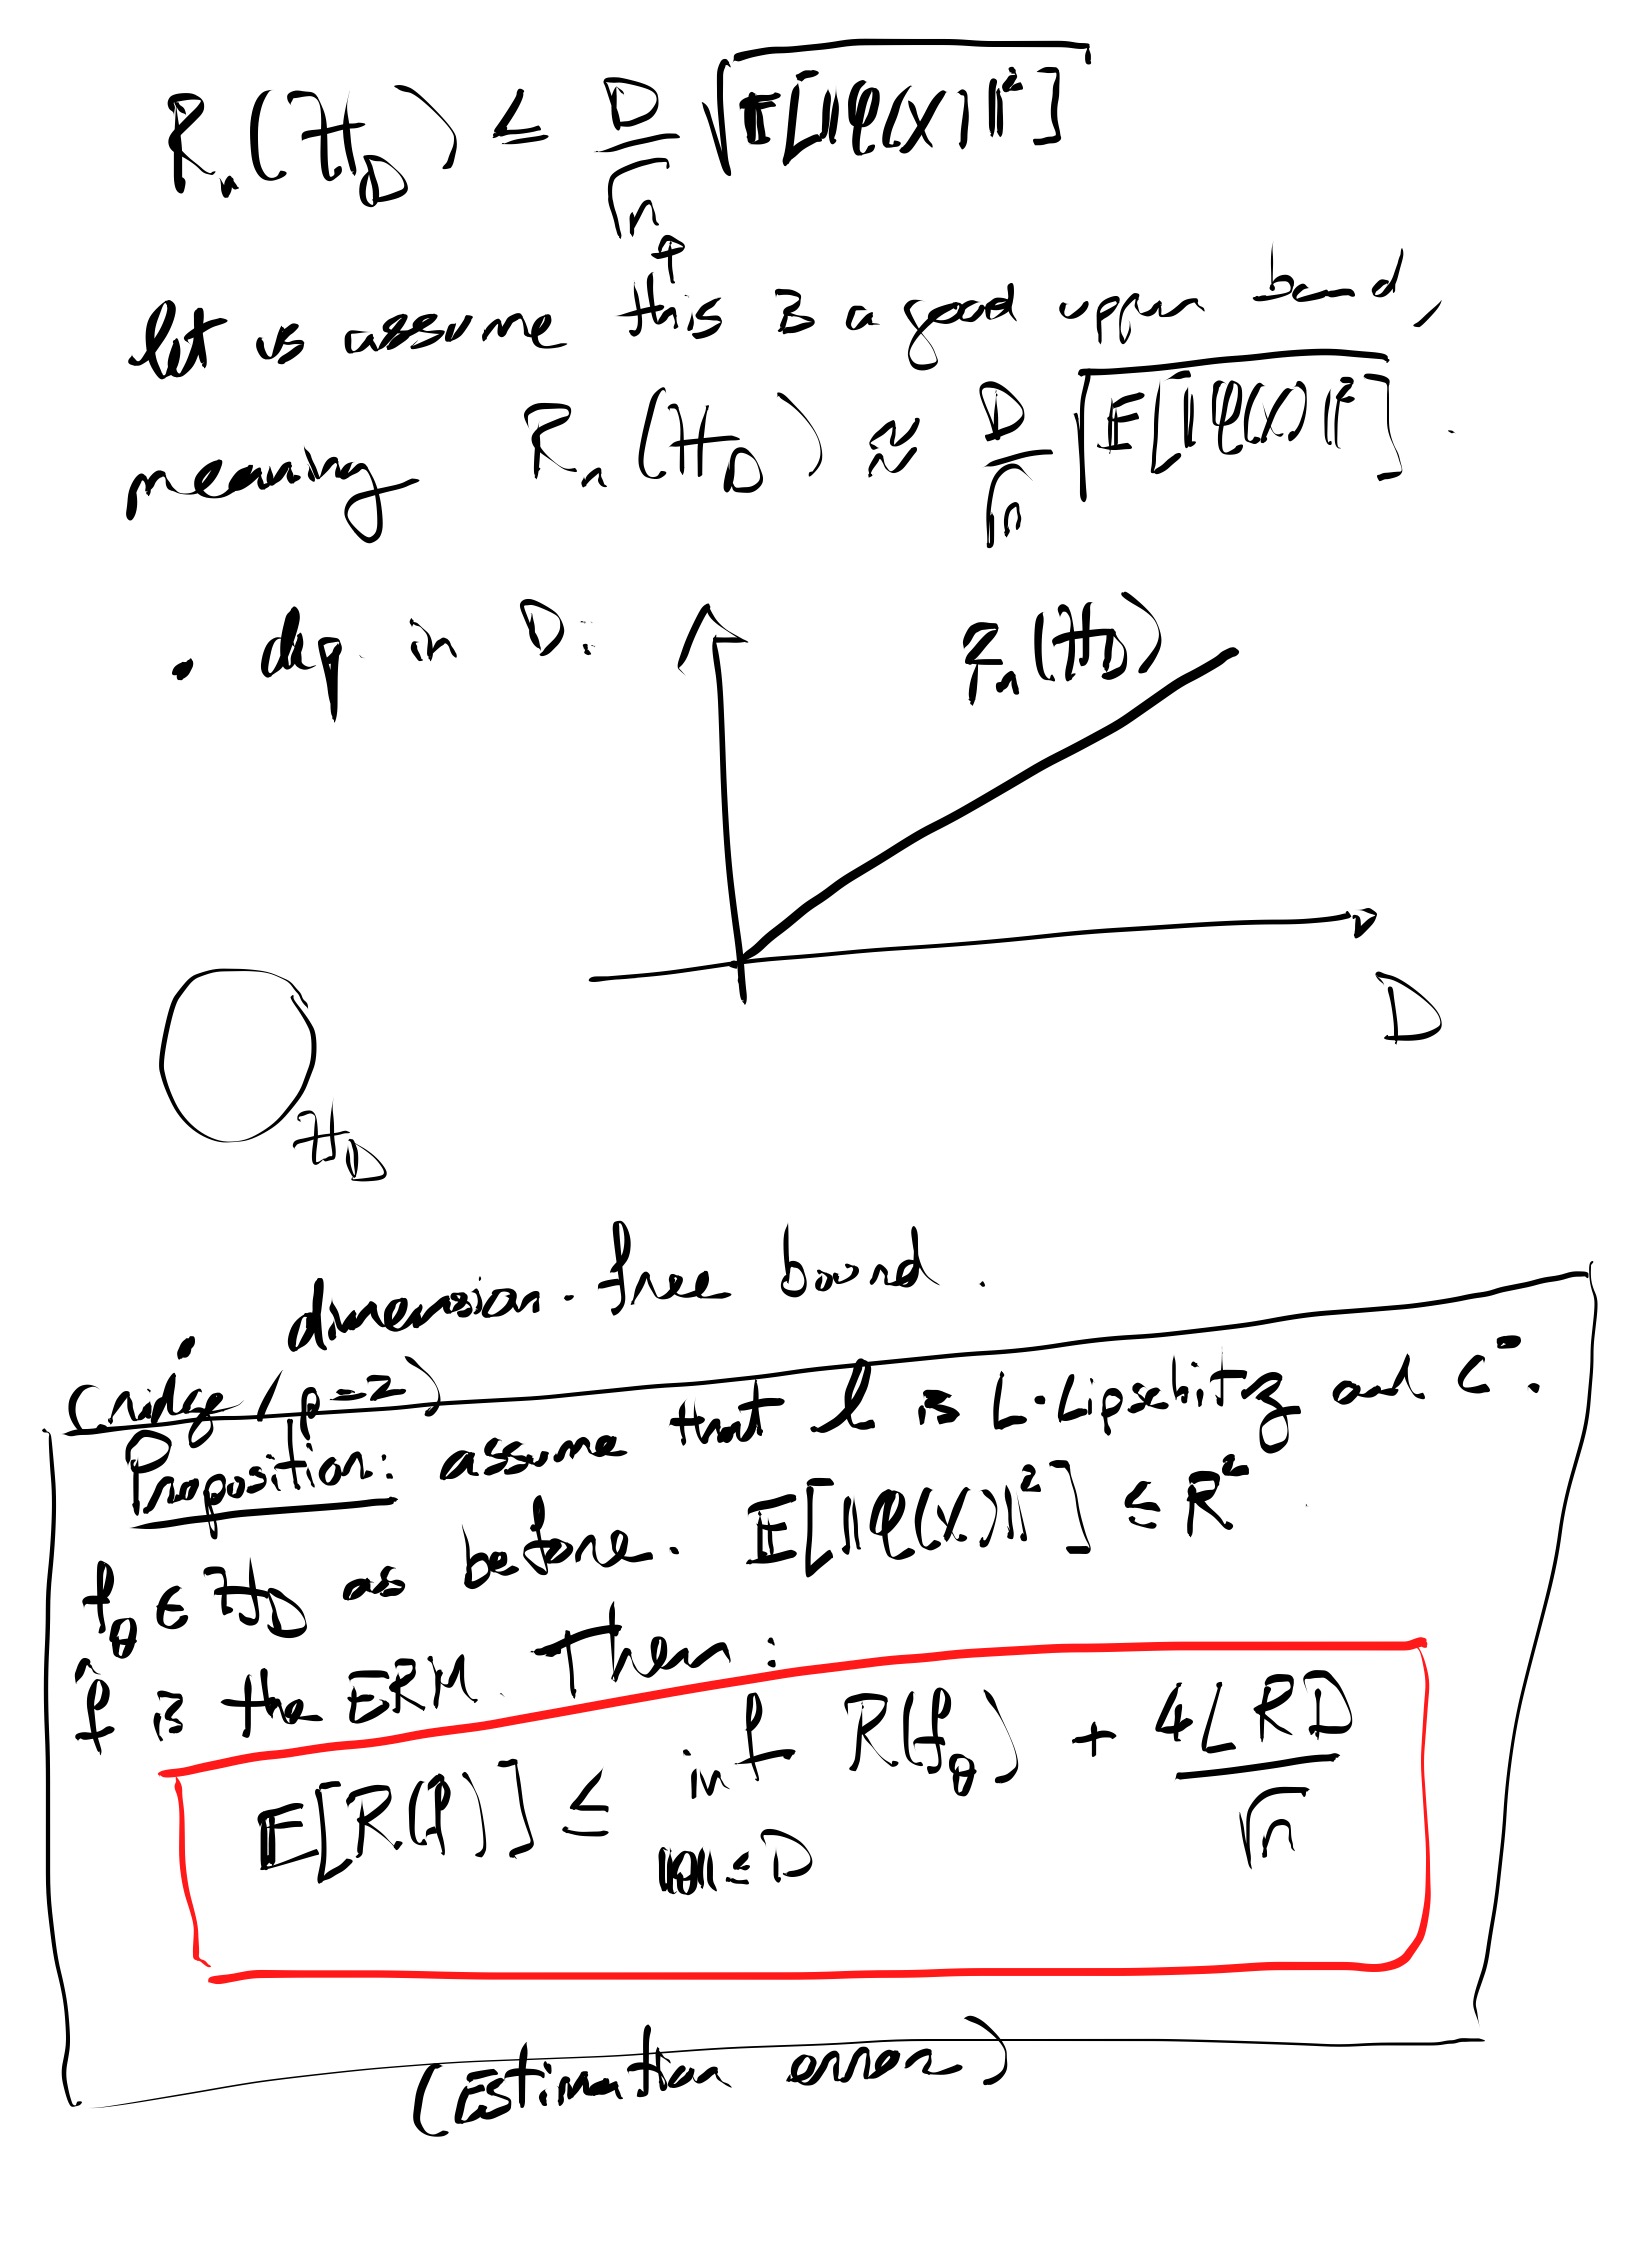 Rₙ(H_D) ≤ D/√n √E[‖φ(X)‖²]
let us assume this is a good upper bound,
meaning Rₙ(H_D) ≈ D/√n √E[‖φ(X)‖²].
• dep. in D:
Rₙ(H_D)
D
H_D
• dimension-free bound.
(ridge / p=2)
Proposition: assume that l is L-Lipschitz and C^∞.
f_θ ∈ H_D as before. E[‖φ(X)‖²] ≤ R²
f̂ is the ERM. Then:
E[R(f̂)] ≤ inf_{‖θ‖≤D} R(f_θ) + 4LRD/√n
(Estimation error)